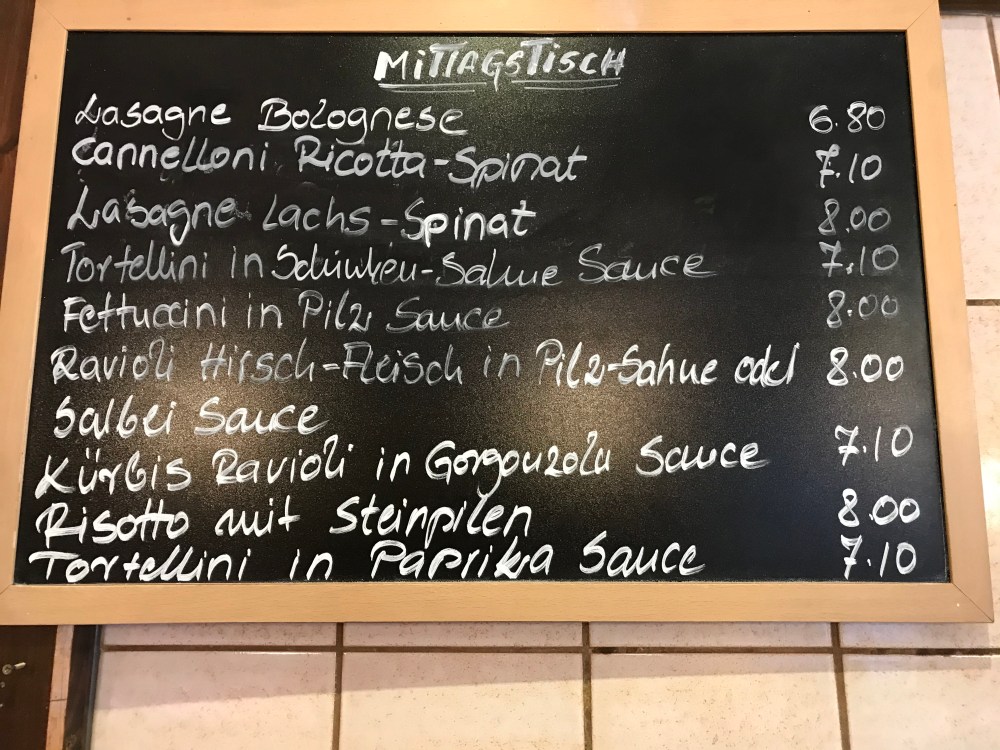 MITTAGSTISCH
Lasagne Bolognese 6.80
Cannelloni Ricotta-Spinat 7.10
Lasagne Lachs-Spinat 8.00
Tortellini in Schinken-Sahne Sauce 7.10
Fettuccini in Pilz Sauce 8.00
Ravioli Hirsch-Fleisch in Pilz-Sahne oder 8.00
Salbei Sauce
Kürbis Ravioli in Gorgonzola Sauce 7.10
Risotto mit Steinpilen 8.00
Tortellini in Paprika Sauce 7.10